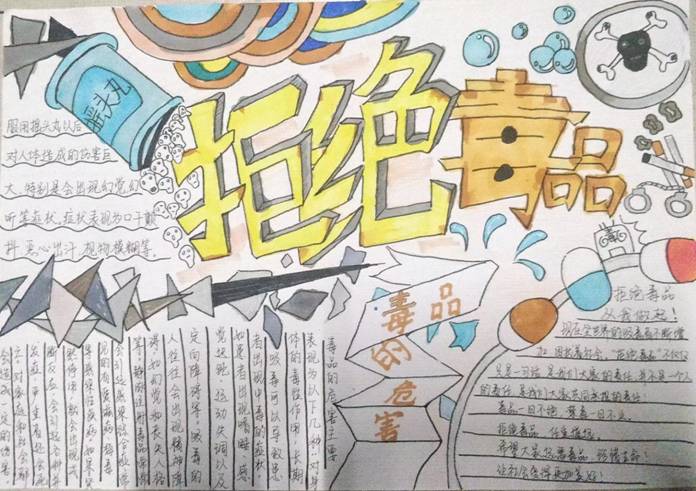 拒绝毒品
摇头丸
服用摇头丸以后
对人体造成的伤害巨
大,特别是会出现幻觉幻
听等症状,症状表现为口干颤
抖,恶心出汗,视物模糊等。
毒品的危害
毒品的危害主要
表现为以下几种:对身
体的毒性作用,长期
吸毒可以导致患
者出现中毒的症状
如患者出现嗜睡,感
觉迟钝,运动失调以及
定向障碍等,吸毒的
人往往会出现精神障
碍,如幻觉和丧失人格
等,静脉注射毒品
毒
拒绝毒品
从我做起!
现在全世界的吸毒者不断增
加,因此禁社会,“拒绝毒品”不仅仅
只是一句话,是我们大家的责任,并不是一个人
的责任,是我们大家共同承担的责任。
毒品一日不绝,禁毒一日不止。
拒绝毒品,
希望大家远离毒品,珍惜生命!
让社会变得更加美好!